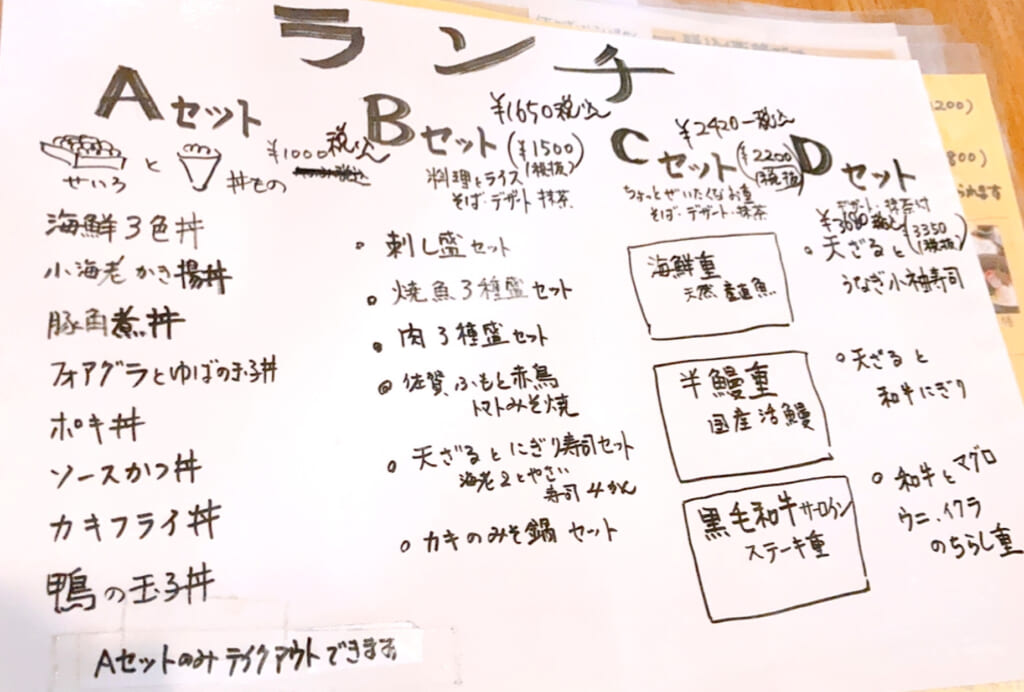 ランチ
Aセット
¥1000税込
せいろ
と
丼もの
海鮮3色丼
小海老かき揚丼
豚角煮丼
フォアグラとゆばの玉子丼
ポキ丼
ソースかつ丼
カキフライ丼
鴨の玉子丼
Aセットのみテイクアウトできます
Bセット
¥1650税込
(¥1500
(税抜)
料理とライス
そば・デザート 抹茶
刺し盛セット
焼魚3種盛セット
肉3種盛セット
佐賀、ふもと赤鳥
トマトみそ焼
天ざるとにぎり寿司セット
海老2とやさい
寿司4かん
カキのみそ鍋セット
Cセット
¥2420-税込
(¥2200
(税抜)
ちょっとぜいたくなお重
そば・デザート・抹茶
海鮮重
天然 産直魚
半鰻重
国産活鰻
黒毛和牛サーロイン
ステーキ重
Dセット
デザート・抹茶付
3350
(税抜)
天ざると
うなぎ小袖寿司
天ざると
和牛にぎり
和牛とマグロ
ウニ、イクラ
のちらし重